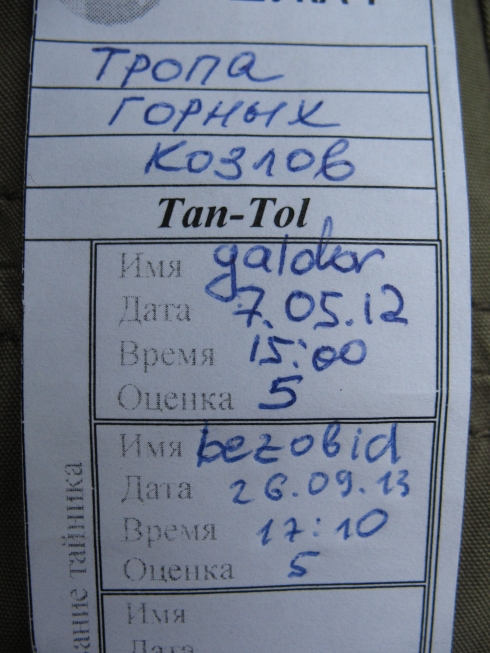 Тропа
горных
козлов
Tan-Tol
Имя galdor
Дата 7.05.12
Время 15:00
Оценка 5
Имя bezobid
Дата 26.09.13
Время 17:10
Оценка 5
Имя
Дата
тайника